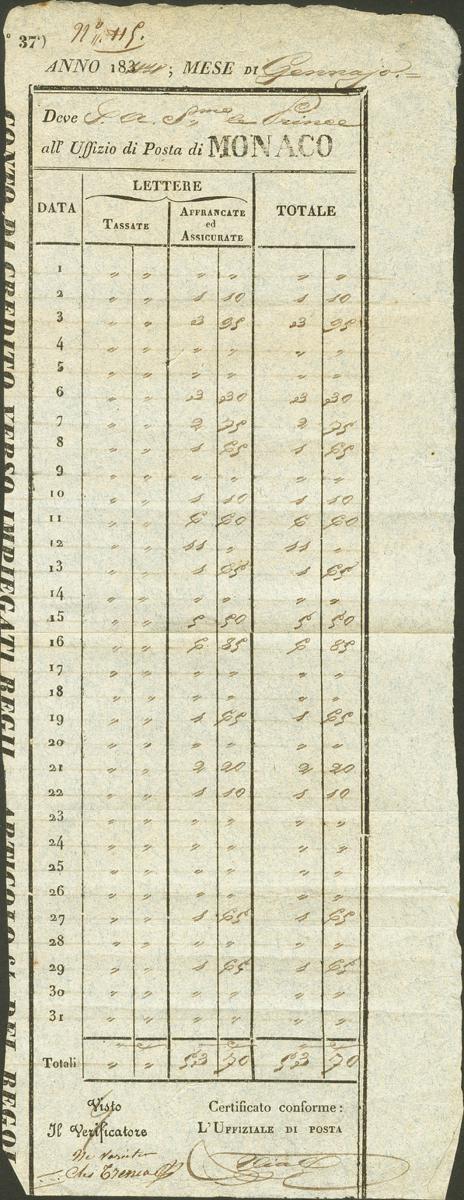 ° 37°)
N.° 115.
ANNO 184 ; MESE DI Gennajo.=
Deve S. A. S.me le Prince
all' Uffizio di Posta di MONACO
DATA LETTERE TOTALE
TASSATE AFFRANCATE ed ASSICURATE
1 „ „ „ „ „ „
2 „ „ 1 10 1 10
3 „ „ 3 95 3 95
4 „ „ „ „ „ „
5 „ „ „ „ „ „
6 „ „ 3 30 3 30
7 „ „ 2 75 2 75
8 „ „ 1 65 1 65
9 „ „ „ „ „ „
10 „ „ 1 10 1 10
11 „ „ 6 60 6 60
12 „ „ 11 „ 11 „
13 „ „ 1 65 1 65
14 „ „ „ „ „ „
15 „ „ 5 50 5 50
16 „ „ 6 85 6 85
17 „ „ „ „ „ „
18 „ „ „ „ „ „
19 „ „ 1 65 1 65
20 „ „ „ „ „ „
21 „ „ 2 20 2 20
22 „ „ 1 10 1 10
23 „ „ „ „ „ „
24 „ „ „ „ „ „
25 „ „ „ „ „ „
26 „ „ „ „ „ „
27 „ „ 1 65 1 65
28 „ „ „ „ „ „
29 „ „ 1 65 1 65
30 „ „ „ „ „ „
31 „ „ „ „ „ „
Totali „ „ 53 70 53 70
Visto
Il Verificatore
Certificato conforme:
L'UFFIZIALE DI POSTA
CONTO DI CREDITO VERSO IMPIEGATI REGII